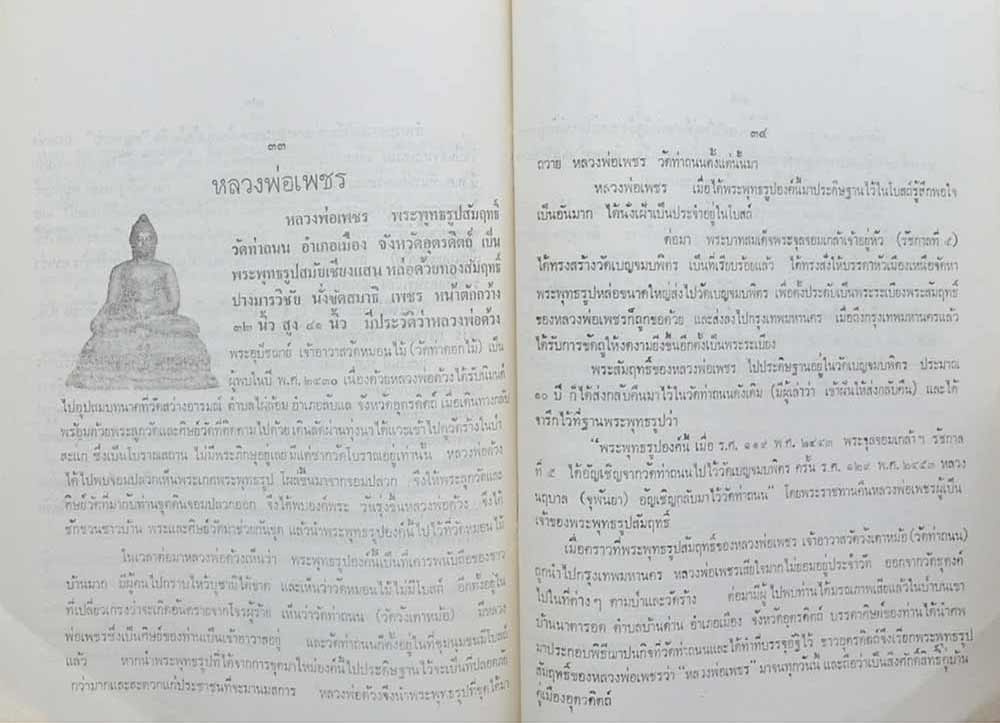 ๓๓
หลวงพ่อเพชร
หลวงพ่อเพชร พระพุทธรูปสัมฤทธิ์
วัดท่าถนน อำเภอเมือง จังหวัดอุตรดิตถ์ เป็น
พระพุทธรูปสมัยเชียงแสน หล่อด้วยทองสัมฤทธิ์
ปางมารวิชัย นั่งขัดสมาธิ เพชร หน้าตักกว้าง
๓๒ นิ้ว สูง ๔๑ นิ้ว มีประวัติว่าหลวงพ่อด้วง
พระอุปัชฌาย์ เจ้าอาวาสวัดหมอนไม้ (วัดท่าดอกไม้) เป็น
ผู้พบในปี พ.ศ. ๒๔๓๐ เนื่องด้วยหลวงพ่อด้วงได้รับนิมนต์
ไปอุปสมบทนาคที่วัดสว่างอารมณ์ ตำบลไผ่ล้อม อำเภอลับแล จังหวัดอุตรดิตถ์ เมื่อเดินทางกลับ
พร้อมด้วยพระลูกวัดและศิษย์วัดที่ติดตามไปด้วย เดินลัดผ่านทุ่งนา ได้แวะเข้าไปดูวัดร้างในป่า
สะแก ซึ่งเป็นโบราณสถาน ไม่มีพระภิกษุอยู่เลย มีแต่ซากวัดโบราณอยู่เท่านั้น หลวงพ่อด้วง
ได้ไปพบจอมปลวกเห็นพระเกศพระพุทธรูป โผล่ขึ้นมาจากจอมปลวก จึงให้พระลูกวัดและ
ศิษย์วัดที่มากับท่านขุดดินจอมปลวกออก จึงได้พบองค์พระ วันรุ่งขึ้นหลวงพ่อด้วง จึงได้
ชักชวนชาวบ้าน พระและศิษย์วัดมาช่วยกันขุด แล้วนำพระพุทธรูปองค์นี้ไปไว้ที่วัดหมอนไม้
ในเวลาต่อมาหลวงพ่อด้วงเห็นว่า พระพุทธรูปองค์นี้เป็นที่เคารพนับถือของชาว
บ้านมาก มีผู้คนไปกราบไหว้บูชามิได้ขาด และเห็นว่าวัดหมอนไม้ไม่มีโบสถ์ อีกทั้งอยู่ใน
ที่เปลี่ยวเกรงว่าจะเกิดอันตรายจากโจรผู้ร้าย เห็นว่าวัดท่าถนน (วัดวังเตาหม้อ) มีหลวง
พ่อเพชรซึ่งเป็นศิษย์ของท่านเป็นเจ้าอาวาสอยู่ และวัดท่าถนนก็ตั้งอยู่ในชุมนุมชนมีโบสถ์
แล้ว หากนำพระพุทธรูปที่ได้จากการขุดมาใหม่องค์นี้ไปประดิษฐานไว้จะเป็นที่ปลอดภัย
กว่ามากและสะดวกแก่ประชาชนที่จะมานมสการ หลวงพ่อด้วงจึงนำพระพุทธรูปที่ขุดได้มา
๓๔
ถวาย หลวงพ่อเพชร วัดท่าถนนตั้งแต่นั้นมา
หลวงพ่อเพชร เมื่อได้พระพุทธรูปองค์นี้มาประดิษฐานไว้ในโบสถ์รู้สึกพอใจ
เป็นอันมาก ได้นั่งเฝ้าเป็นประจำอยู่ในโบสถ์
ต่อมา พระบาทสมเด็จพระจุลจอมเกล้าเจ้าอยู่หัว (รัชกาลที่ ๕)
ได้ทรงสร้างวัดเบญจมบพิตร เป็นที่เรียบร้อยแล้ว ได้ทรงสั่งให้บรรดาหัวเมืองเหนือจัดหา
พระพุทธรูปหล่อขนาดใหญ่ส่งไปวัดเบญจมบพิตร เพื่อตั้งประดับเป็นพระระเบียงพระสัมฤทธิ์
ของหลวงพ่อเพชรก็ถูกขอด้วย และส่งลงไปกรุงเทพมหานคร เมื่อถึงกรุงเทพมหานครแล้ว
ได้รับการขัดถูให้งดงามยิ่งขึ้นอีกตั้งเป็นพระระเบียง
พระสัมฤทธิ์ของหลวงพ่อเพชร ไปประดิษฐานอยู่ในวัดเบญจมบพิตร ประมาณ
๑๐ ปี ก็ได้ส่งกลับคืนมาไว้ในวัดท่าถนนดังเดิม (มีผู้เล่าว่า เข้าฝันให้ส่งกลับคืน) และได้
จารึกไว้ที่ฐานพระพุทธรูปว่า
"พระพุทธรูปองค์นี้ เมื่อ ร.ศ. ๑๑๙ พ.ศ. ๒๔๔๓ พระจุลจอมเกล้าฯ รัชกาล
ที่ ๕ ได้อัญเชิญจากวัดท่าถนนไปไว้วัดเบญจมบพิตร ครั้น ร.ศ. ๑๒๙ พ.ศ. ๒๔๕๓ หลวง
นฤบาล (จุพันยา) อัญเชิญกลับมาไว้วัดท่าถนน" โดยพระราชทานคืนหลวงพ่อเพชรผู้เป็น
เจ้าของพระพุทธรูปสัมฤทธิ์
เมื่อคราวที่พระพุทธรูปสัมฤทธิ์ของหลวงพ่อเพชร เจ้าอาวาสวัดวังเตาหม้อ (วัดท่าถนน)
ถูกนำไปกรุงเทพมหานคร หลวงพ่อเพชรเสียใจมากไม่ยอมอยู่ประจำวัด ออกจากวัดธุดงค์
ไปในที่ต่างๆ ตามป่าและวัดร้าง ต่อมามีผู้ไปพบท่านได้มรณภาพเสียแล้วในป่าบนเขา
บ้านนาตารอด ตำบลบ้านด่าน อำเภอเมือง จังหวัดอุตรดิตถ์ บรรดาศิษย์ของท่านได้นำศพ
มาประกอบพิธีฌาปนกิจที่วัดท่าถนนและได้ทำที่บรรจุอัฐิไว้ ชาวอุตรดิตถ์จึงเรียกพระพุทธรูป
สัมฤทธิ์ของหลวงพ่อเพชรว่า "หลวงพ่อเพชร" มาจนทุกวันนี้ และถือว่าเป็นสิ่งศักดิ์สิทธิ์คู่บ้าน
คู่เมืองอุตรดิตถ์